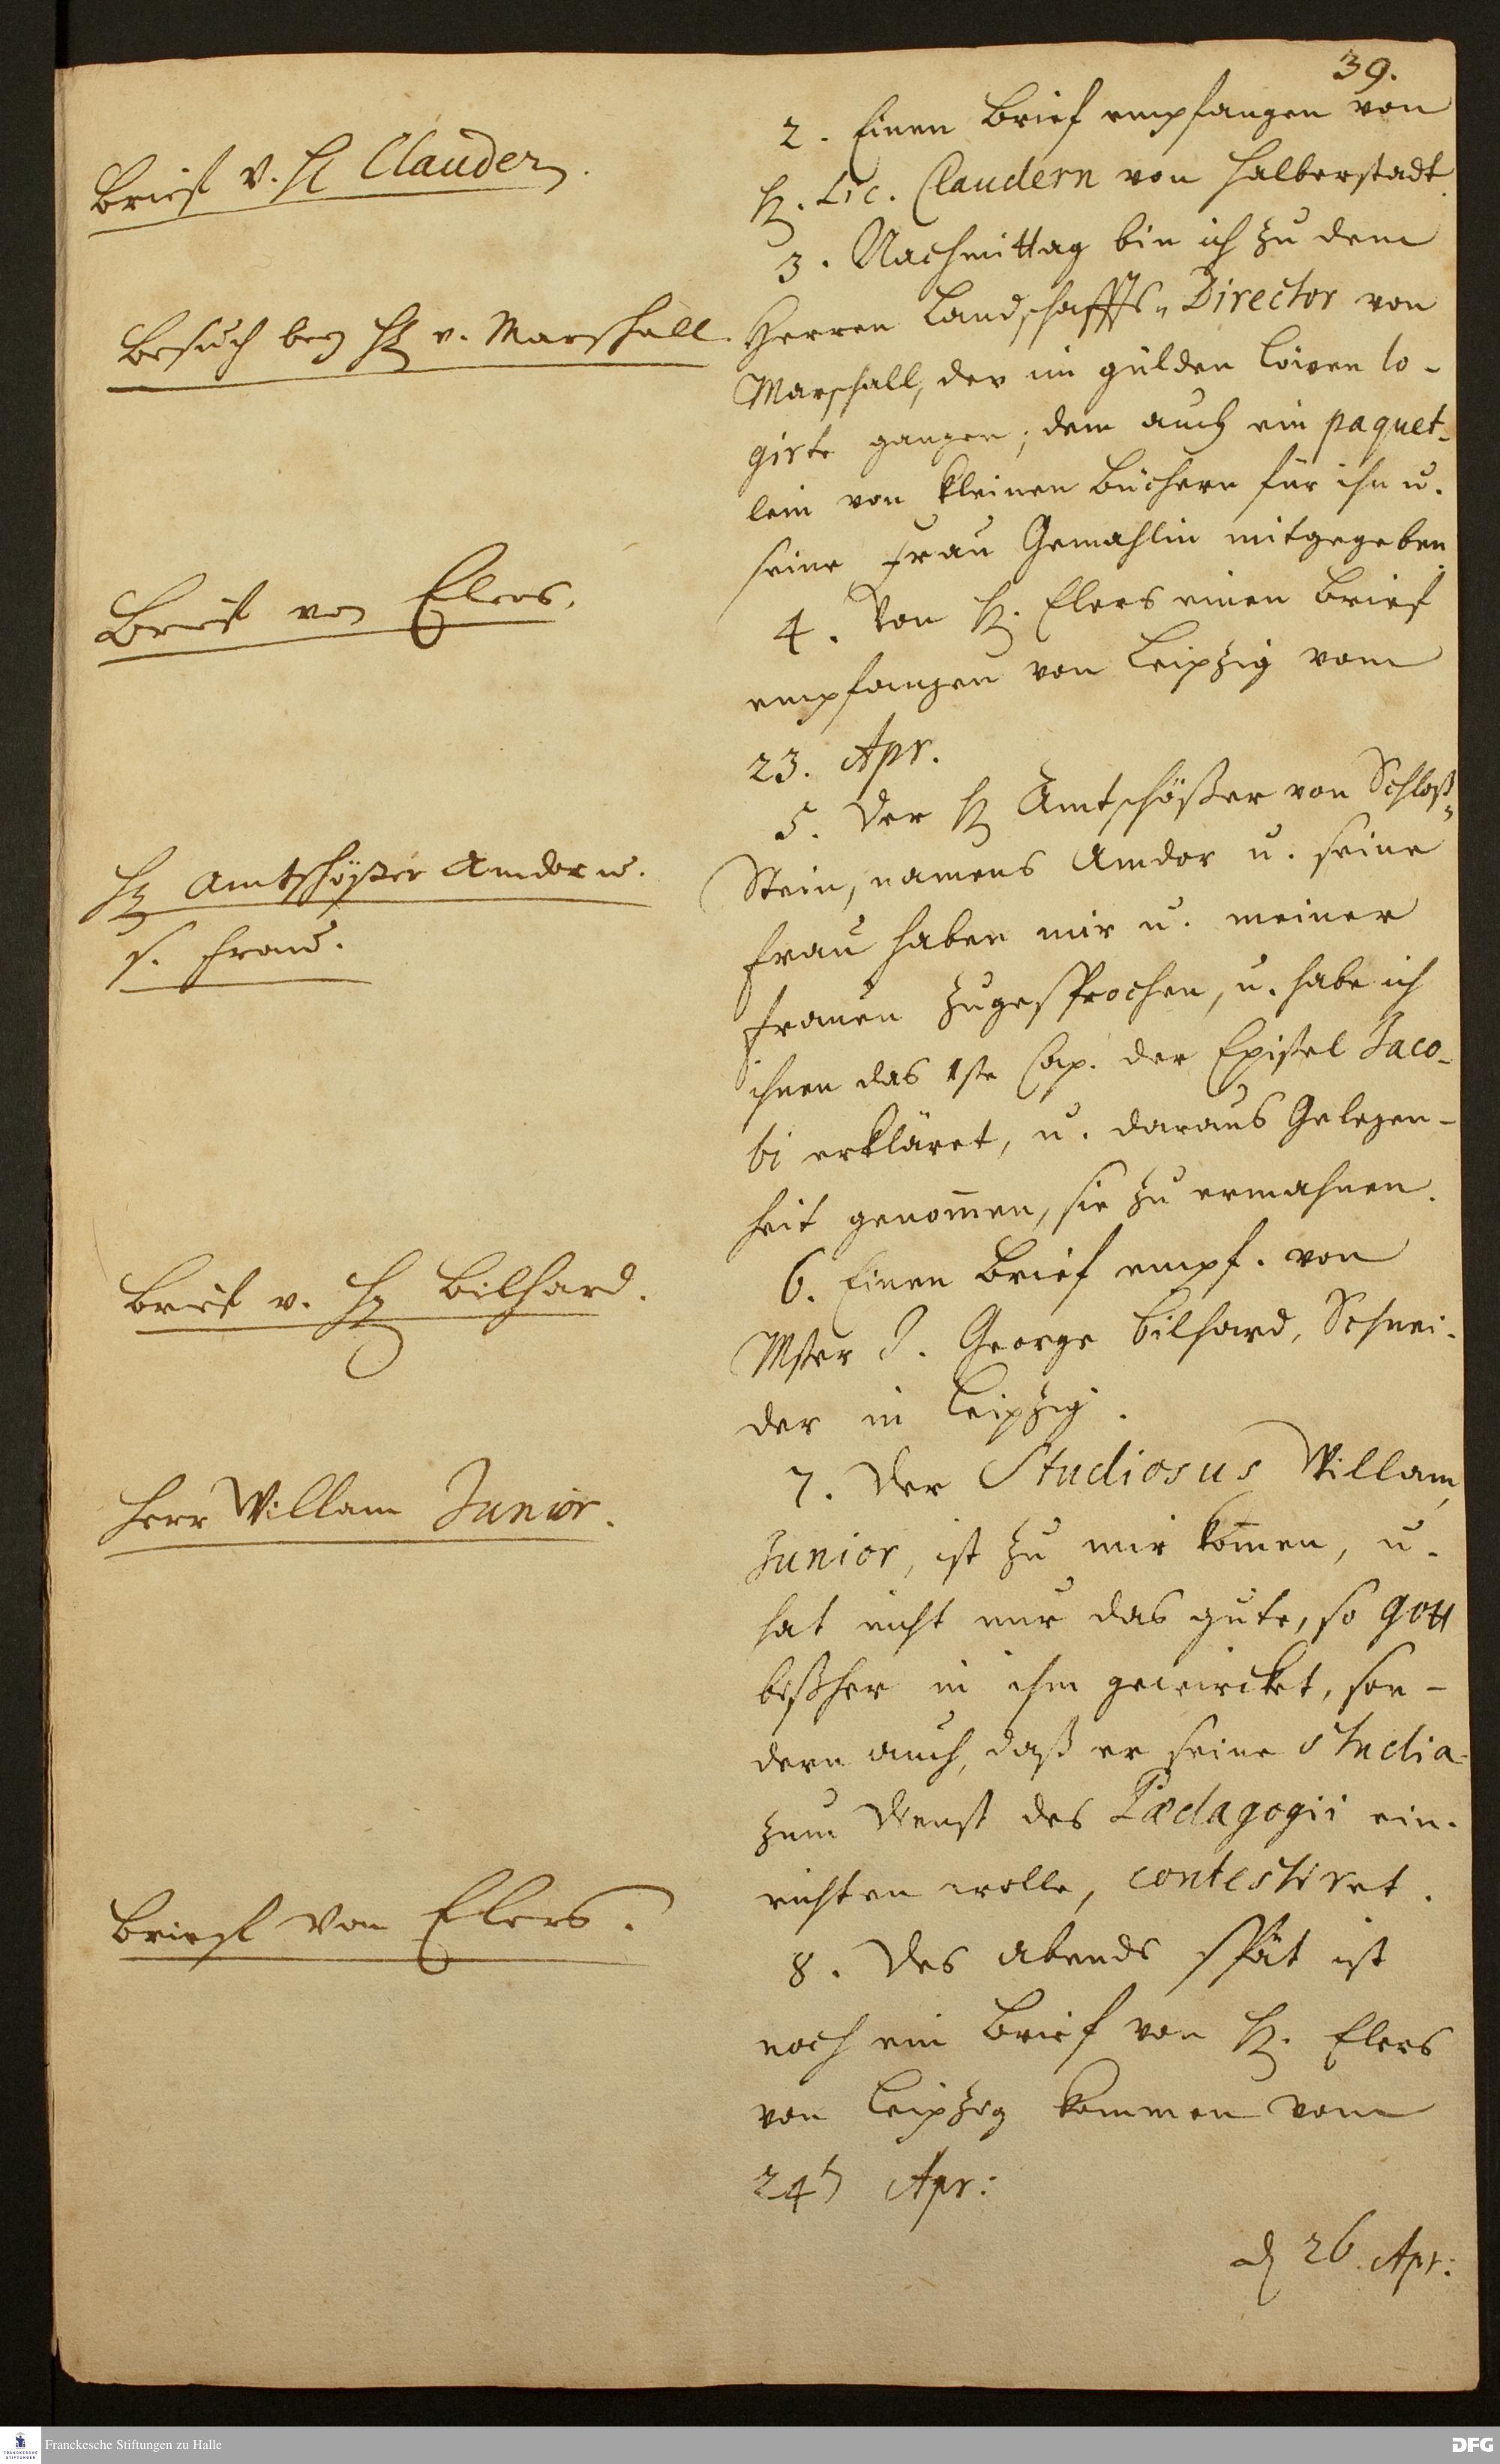 39.
Brieff v. H Clauder.
2. Einen Brief empfangen von
H. Lic. Claudern von Halberstadt.
Besuch bey H v. Marshall.
3. Nachmittag bin ich zu dem
Herren Landschaffts-Director von
Marschall, der im gülden Löwen lo-
girte gangen; dem auch ein paquet-
lein von kleinen Büchern für ihn u.
seine Frau Gemahlin mitgegeben.
Brieff von Elers.
4. Von H. Elers einen Brief
empfangen von Leipzig vom
23. Apr.
H Amtschößer Amdor u.
s. Frau.
5. Der H Amtschößer von Schloß-
Stein, namens Amdor u. seine
Frau haben mir u. meiner
Frauen zugesprochen, u. habe ich
ihnen das 1ste Cap. der Epistel Jaco-
bi erkläret, u. daraus Gelegen-
heit genom̄en, sie zu ermahnen.
Brieff v. H Bilhard.
6. Einen Brief empf. von
Mster J. George Bilhard, Schnei-
der in Leipzig.
Herr Willam Junior.
7. Der Studiosus Willam,
Junior, ist zu mir kom̄en, u.
hat nicht nur das gute, so Gott
bißher in ihm gewircket, son-
dern auch, daß er seine Studia
zum Dienst des Pædagogii ein-
richten wolle, contestiret.
Brieff von Elers.
8. Des abends spät ist
noch ein Brief von H. Elers
von Leipzig kommen vom
24t Apr:
d 26. Apr:
Franckesche Stiftungen zu Halle
FRANCKESCHE STIFTUNGEN
DFG